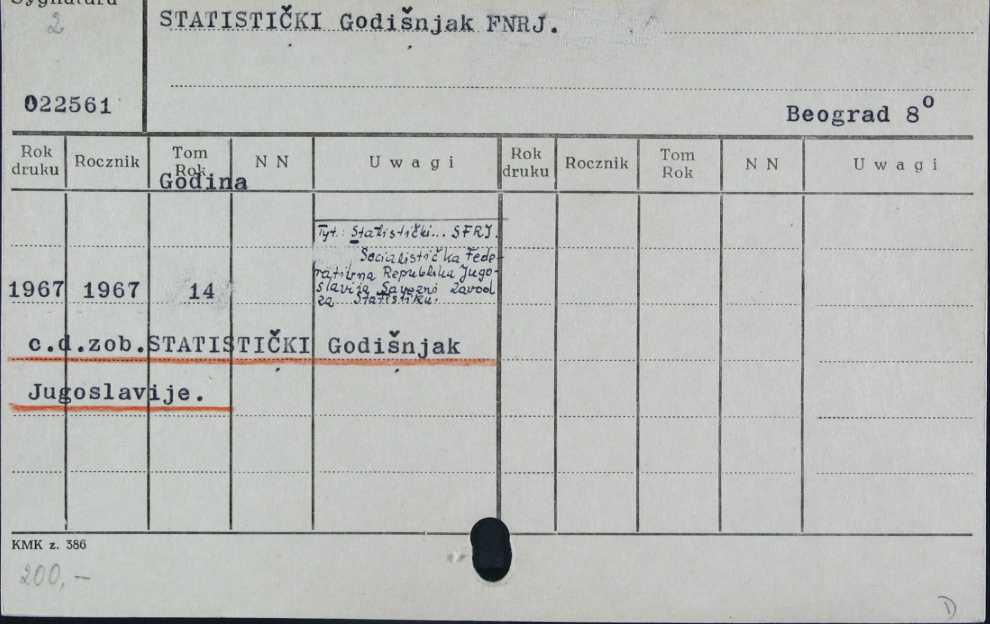 Sygnatura
2
STATISTIČKI Godišnjak FNRJ.
022561
Beograd 8°
Rok druku Rocznik Tom Rok N N U w a g i Rok druku Rocznik Tom Rok N N U w a g i
Godina
Tyt. Statistički... SFRJ.
Socialistička Fede-
rativna Republika Jugo-
slavija Savezni Zavod
za Statistiku.
1967 1967 14
c.d.zob.STATISTIČKI Godišnjak
Jugoslavije.
KMK z. 386
200,-